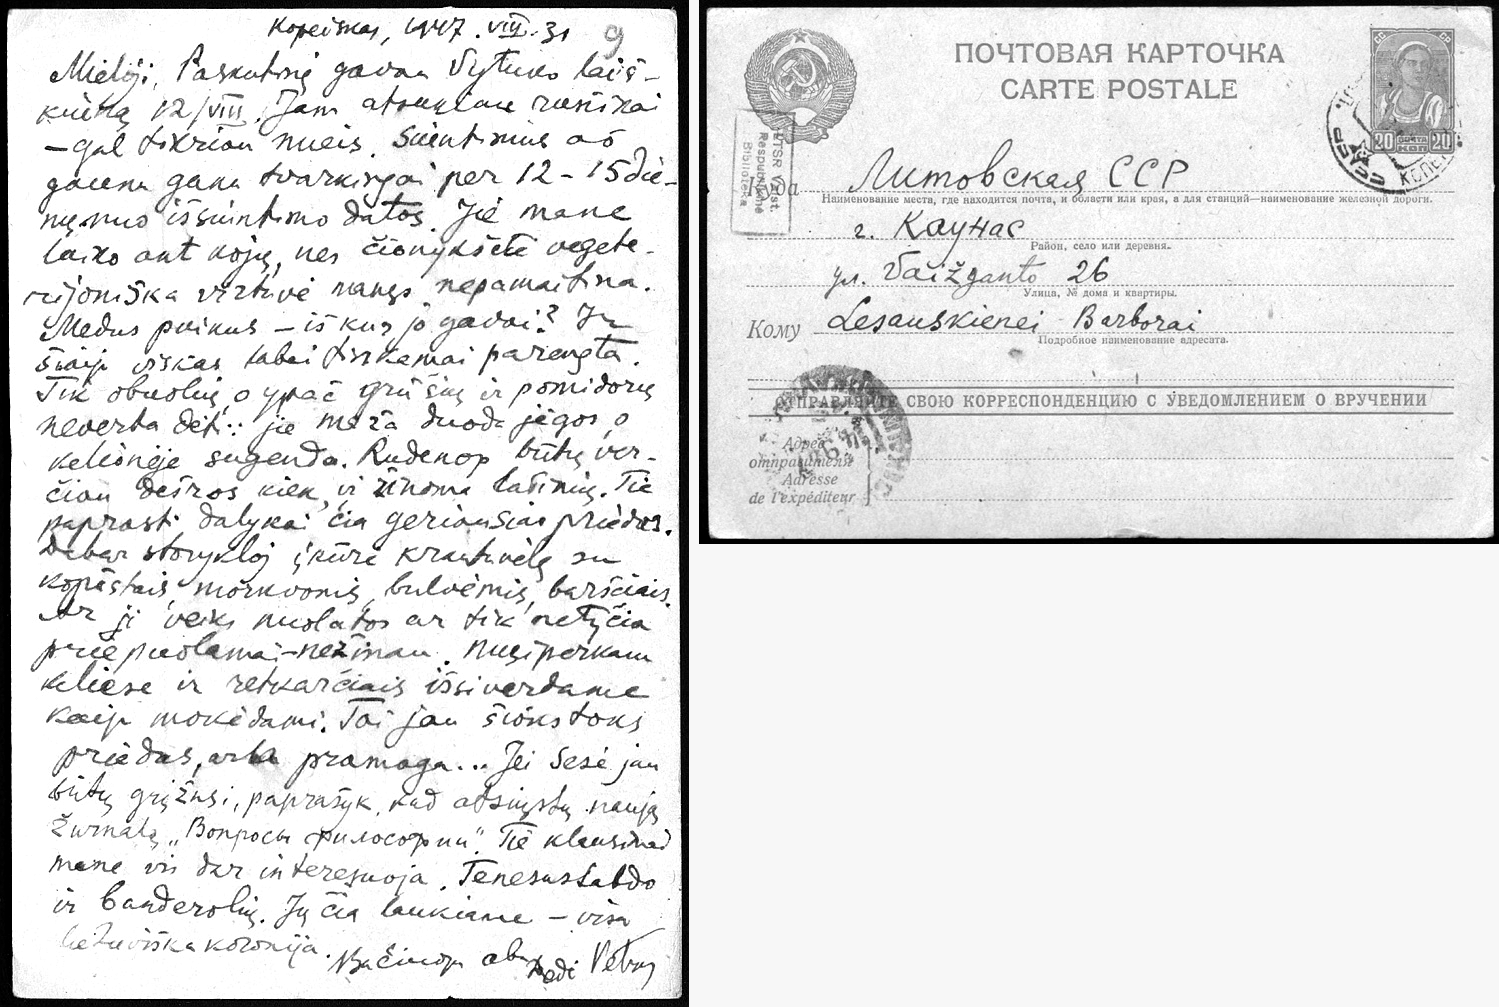 Kopeiskas, 1947.VIII.31 9
Mieloji, Paskutinį gavau Vytuko laiš-
kutį 12/VIII. Jam atsakiau rusiškai
– gal tikriau nueis. Siuntinius aš
gaunu gana tvarkingai per 12 – 15 die-
nų nuo išsiuntimo datos. Jie mane
laiko ant kojų, nes čionykštė vegete-
rijoniška virtuvė manęs nepamaitina.
Medus puikus – iš kur jo gavai? Ir
šiaip viskas labai tinkamai parengta.
Tik obuolių, o ypač grūšių ir pomidorų
neverta dėti: jie maža duoda jėgos, o
kelionėje sugenda. Rudeniop būtų ver-
čiau dešros kiek, ir žinoma lašinių. Tie
paprasti dalykai čia geriausias priedas.
Dabar stovykloj įkūrė krautuvėlę su
kopūstais, morkvomis, bulvėmis, barščiais.
Ar ji veiks nuolatos ar tik netyčia
priepuolamai – nežinau. Nusiperkam
keliese ir retkarčiais išsiverdame
kaip mokėdami. Tai jau šioks toks
priedas, arba pramoga... Jei Sesė jau
būtų grįžusi, paprašyk, kad atsiųstų naują
žurnalą „Вопросы философии“. Tie klausimai
mane vis dar interesuoja. Tenesustabdo
ir banderolių. Jų čia laukiame – visa
lietuviška kolonija.
Bučiuoju abu
Dėdi Petras
ПОЧТОВАЯ КАРТОЧКА
CARTE POSTALE
LTSR Valst
Respublikinė
Biblioteka
20 ПОЧТА КОП 20
СССР
Куда Литовская ССР
Наименование места, где находится почта, и области или края, а для станций—наименование железной дороги.
г. Каунас
Район, село или деревня.
ул. Vaižganto 26
Улица, № дома и квартиры.
Кому Lesauskienei Barborai
Подробное наименование адресата.
ОТПРАВЛЯЙТЕ СВОЮ КОРРЕСПОНДЕНЦИЮ С УВЕДОМЛЕНИЕМ О ВРУЧЕНИИ
Адрес
отправителя
Adresse
de l'expéditeur